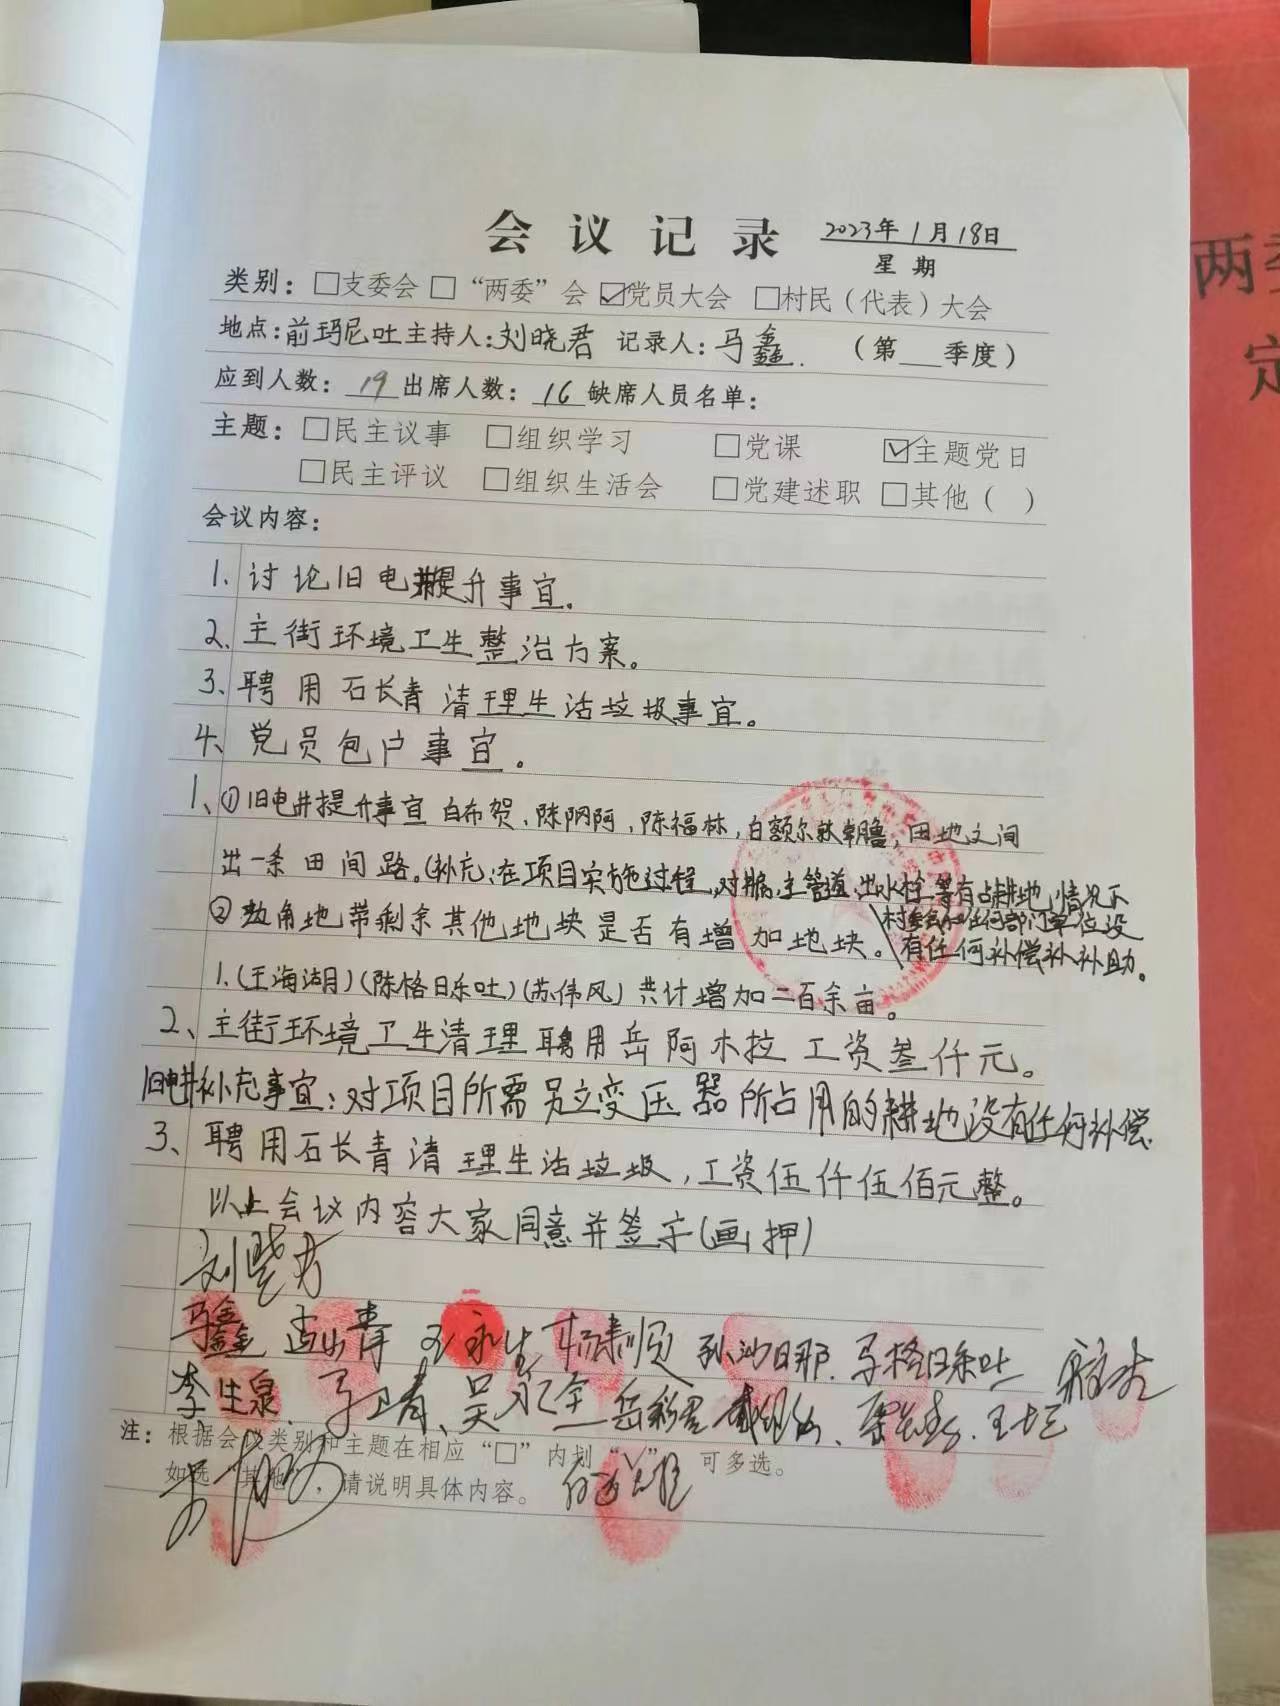 会议记录 2023年1月18日
星期
类别：□支委会 □“两委”会 ☑党员大会 □村民（代表）大会
地点：前玛尼吐 主持人：刘晓君 记录人：马鑫. （第 季度）
应到人数：19 出席人数：16 缺席人员名单：
主题：□民主议事 □组织学习 □党课 ☑主题党日
□民主评议 □组织生活会 □党建述职 □其他（ ）
会议内容：
1. 讨论旧电井提升事宜.
2、主街环境卫生整治方案。
3、聘用石长青清理生活垃圾事宜。
4、党员包户事宜。
1、①旧电井提升事宜 白布贺，陈阴阿，陈福林，白额尔敦朝鲁，田地之间
出一条田间路。(补充：在项目实施过程，对 主管道，出水栓等有占耕地情况下
村委会和任何部门单位没
②边角地带剩余其他地块是否有增加地块。有任何补偿补补助。
1.(王海湖)(陈格日乐吐)(苏伟风) 共计增加二百余亩。
2、主街环境卫生清理聘用岳阿木拉工资叁仟元。
旧电井补充事宜：对项目所需另立变压器所占用的耕地没有任何补偿
3、聘用石长青清理生活垃圾，工资伍仟伍佰元整。
以上会议内容大家同意并签字(画押)
刘晓君
马鑫 王永生 杨秀顺 孙沙日那. 马格日乐吐
李生泉. 马卫青、吴永全
注：根据会议类别和主题在相应“□”内划“√”可多选。
如选“其他”，请说明具体内容。
两
定